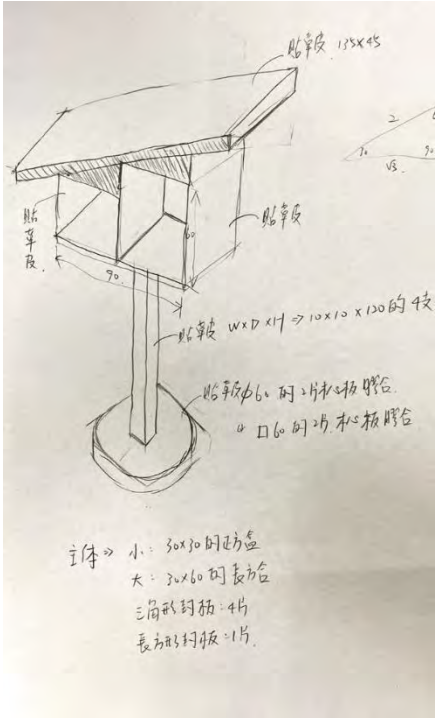 貼草皮 135×45
2
30
√3
90
貼草皮
貼草皮
60
90
貼草皮 W×D×H ⇒ 10×10×120 的 4支
貼草皮 φ60 的 2片木心板膠合
〃 □60 的 2片 木心板膠合
主体⇒ 小: 30×30的正方盒
大: 30×60的長方合
三角形封板:4片
長方形封板:1片